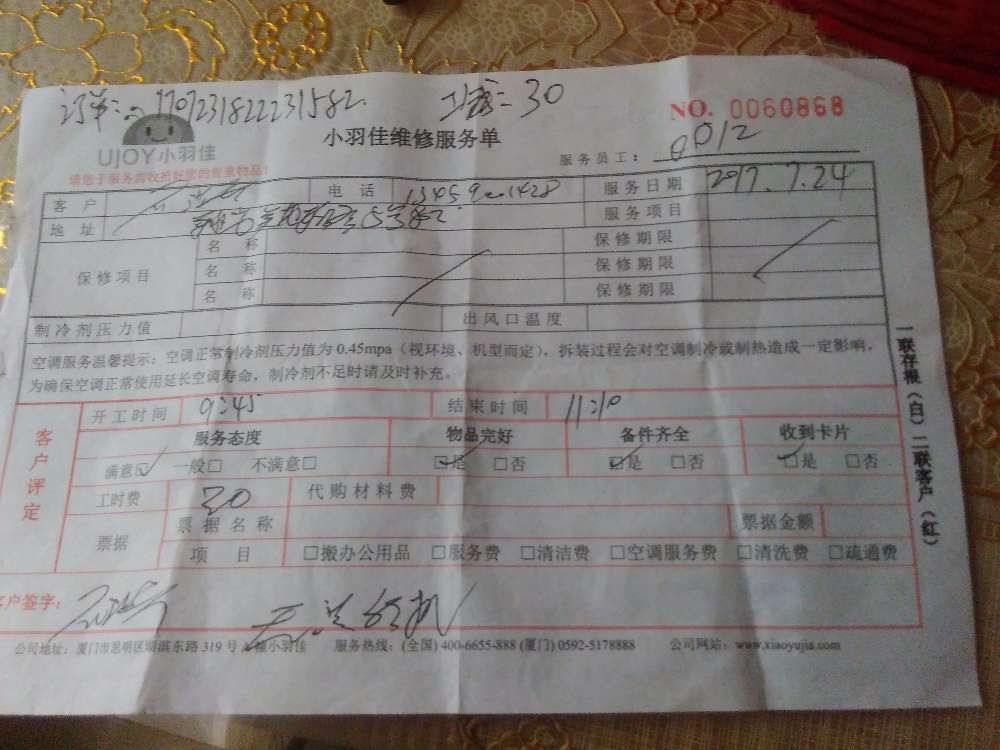 订单: 1707231822231582 30
NO. 0060868
UJOY小羽佳
小羽佳维修服务单
服务员工: 0012
请您于服务前收拾好您的贵重物品!
客户 电话 服务日期 2017.7.24
地址 服务项目
保修项目 名称 保修期限
名称 保修期限
名称 保修期限
制冷剂压力值 出风口温度
空调服务温馨提示:空调正常制冷剂压力值为0.45mpa(视环境、机型而定),拆装过程会对空调制冷或制热造成一定影响,
为确保空调正常使用延长空调寿命,制冷剂不足时请及时补充。
客户评定
开工时间 9:45 结束时间 11:10
服务态度 物品完好 备件齐全 收到卡片
满意☑ 一般□ 不满意□ ☑是 □否 ☑是 □否 ☑是 □否
工时费 30 代购材料费
票据 票据名称 票据金额
项目 □搬办公用品 □服务费 □清洁费 □空调服务费 □清洗费 □疏通费
客户签字:
公司地址:厦门市思明区湖滨东路319号 小羽佳 服务热线:(全国) 400-6655-888 (厦门) 0592-5178888 公司网站:www.xiaoyujia.com
一联存根(白)二联客户(红)